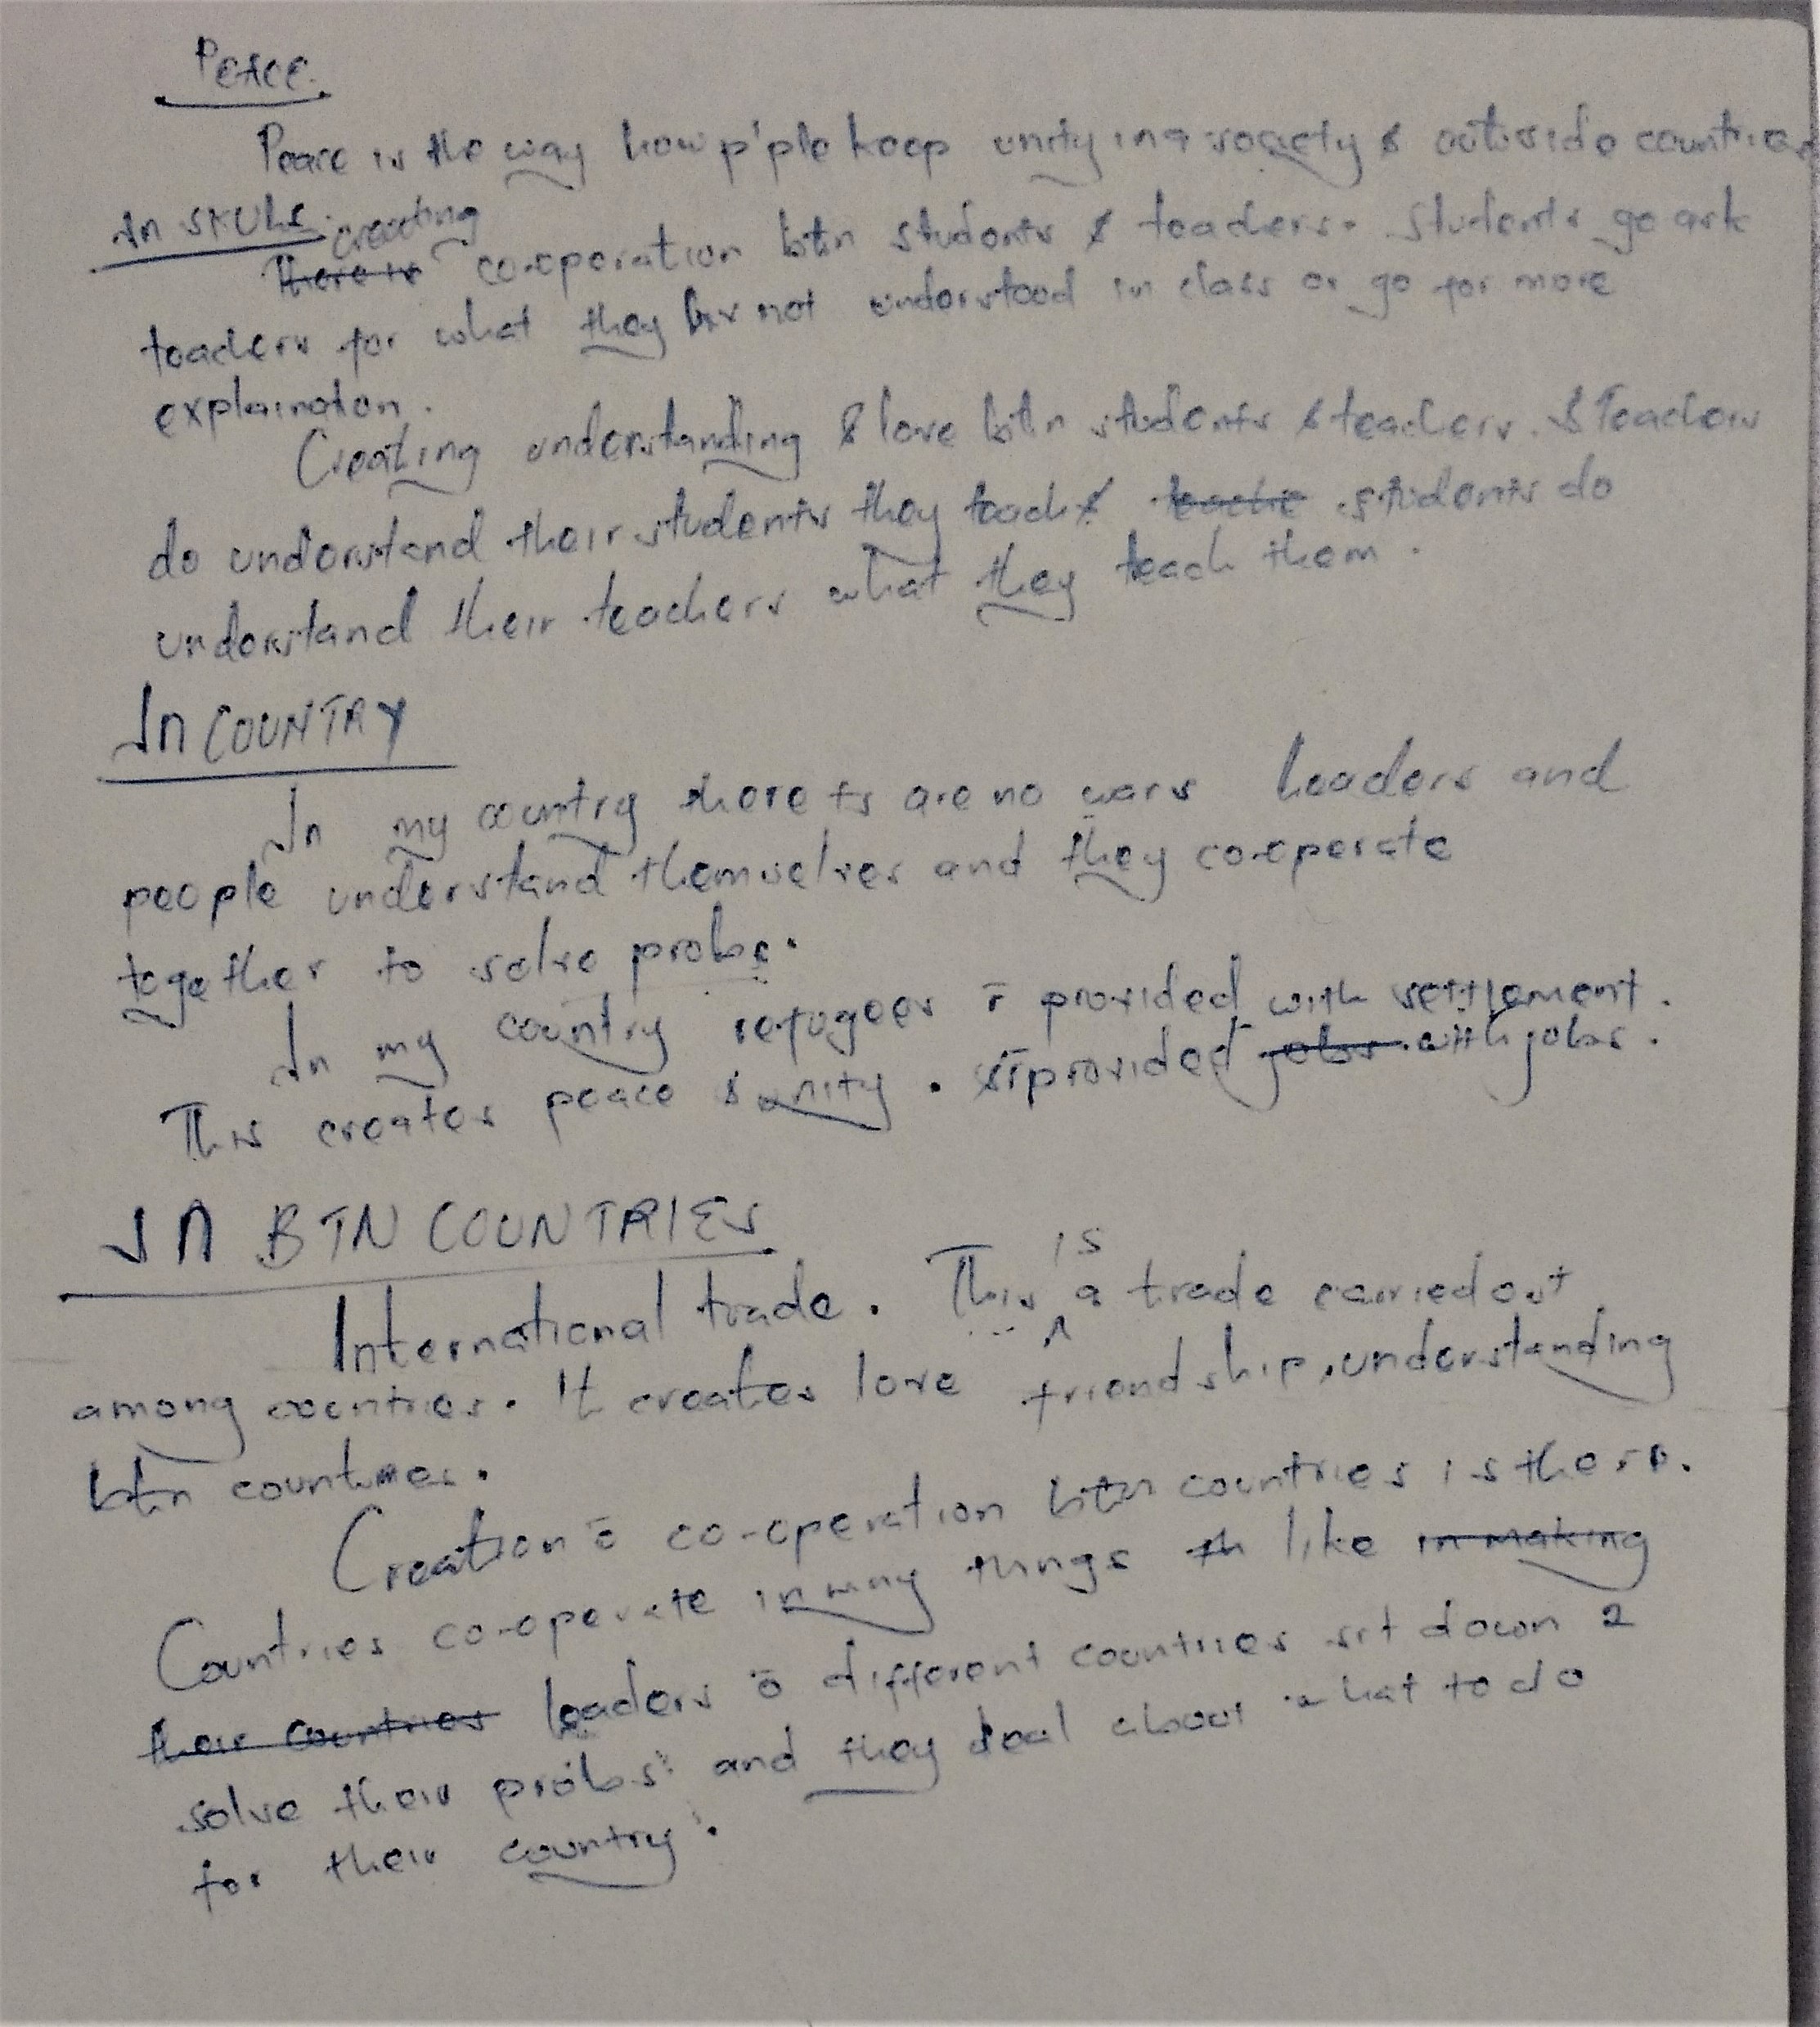 Peace.
Peace is the way how p'ple keep unity in a society & outside countries
In SKULS. creating
There is co-operation btn students & teachers. Students go ask
teachers for what they hav not understood in class or go for more
explaination.
Creating understanding & love btn students & teachers. & Teachers
do understand their students they teach & teache students do
understand their teachers what they teach them.
In COUNTRY
In my country there is are no wars Leaders and
people understand themselves and they co-operate
together to solve probs.
In my country refugees r provided with settlement.
This creates peace & unity. & r provided jobs with jobs.
In BTN COUNTRIES
International trade. This is a trade carried out
among countries. It creates love friendship, understanding
btn countries.
Creation ō co-operation btn countries is there.
Countries co-operate in many things th like in making
their countries leaders ō different countries sit down 2
solve their probs: and they deal about what to do
for their country.